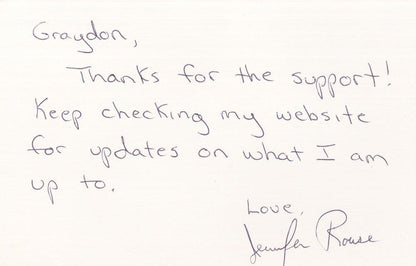 Graydon,
Thanks for the support!
Keep checking my website
for updates on what I am
up to.
Love,
Jennifer Rouse